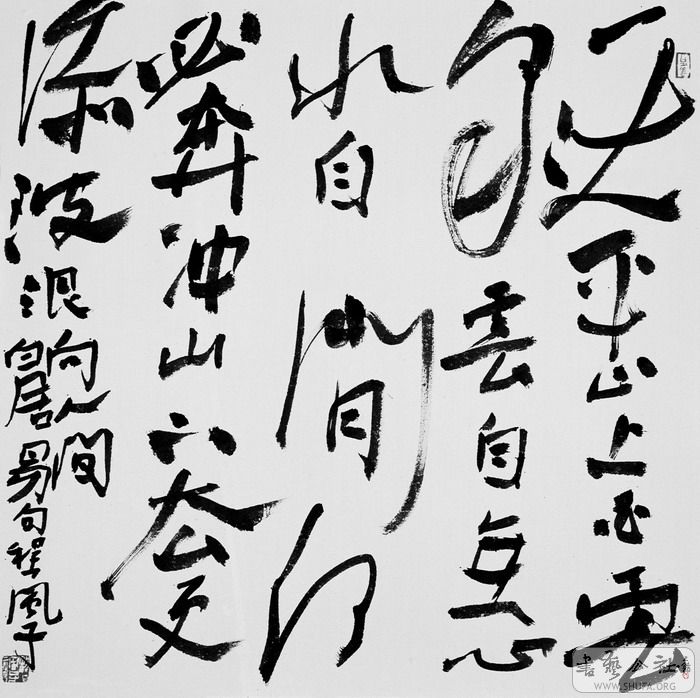 天平山上白雲
泉雲自無心
水自閒何
必奔冲山下去更
添波浪向人間
白居易句程風子
書藝公社
WWW.SHUFA.ORG